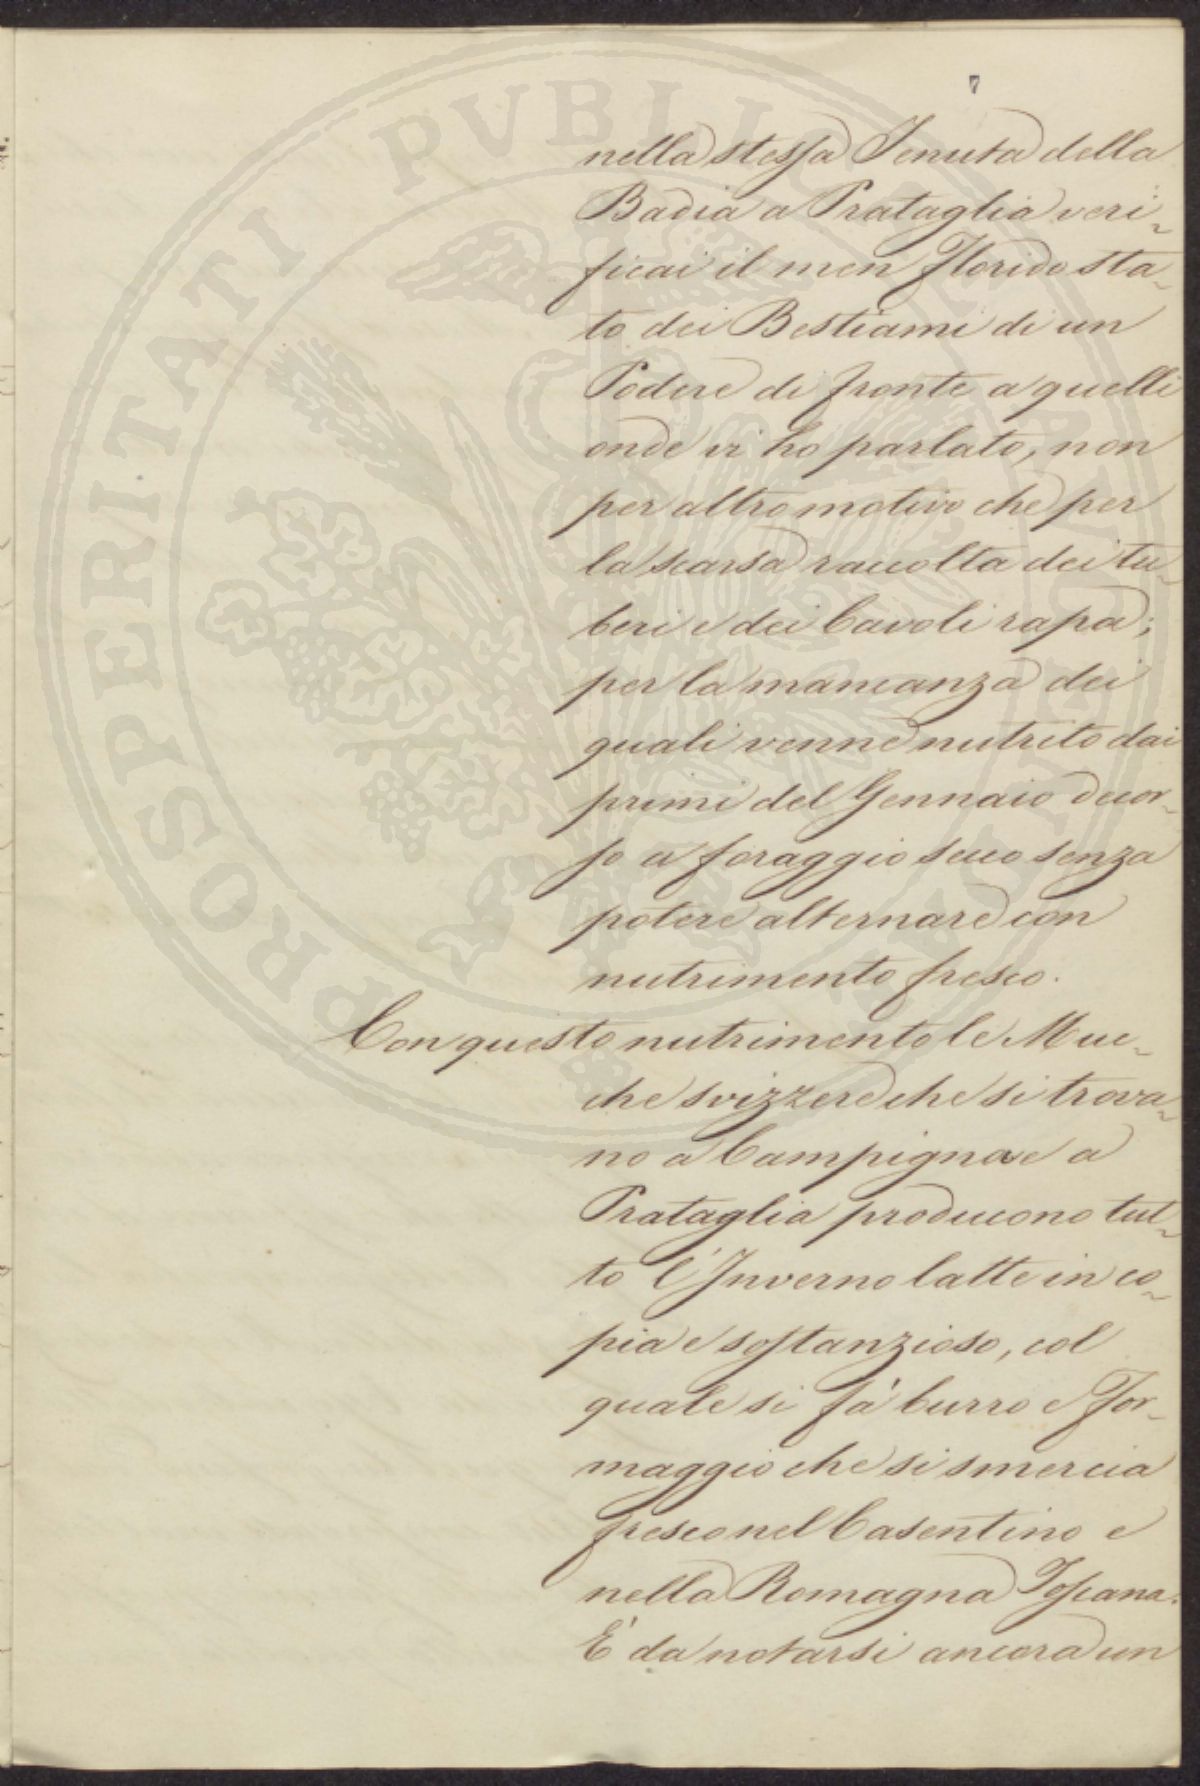 7
nella stessa Tenuta della
Badia a Prataglia veri-
ficai il men florido sta-
to dei Bestiami di un
Podere di fronte a quelli
onde vi ho parlato, non
per altro motivo che per
la scarsa raccolta dei tu-
beri e dei Cavoli rapa;
per la mancanza dei
quali venne nutrito dai
primi del Gennaio decor-
so a foraggio secco senza
potere alternare con
nutrimento fresco.
Con questo nutrimento le Muc-
che svizzere che si trova-
no a Campigna e a
Prataglia producono tut-
to l'Inverno latte in co-
pia e sostanzioso, col
quale si fà burro e For-
maggio che si smercia
fresco nel Casentino e
nella Romagna Toscana.
E' da notarsi ancora un
PROSPERITATI PVBLICAE AVGENDAE